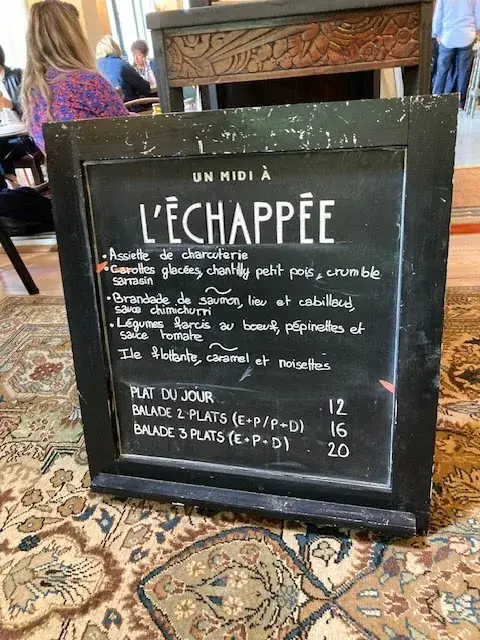 UN MIDI À
L'ÉCHAPPÉE
• Assiette de charcuterie
• Carottes glacées, chantilly petit pois, crumble
sarrasin
• Brandade de saumon, lieu et cabillaud,
sauce chimichurri
• Légumes farcis au bœuf, pépinettes et
sauce tomate
Ile flottante, caramel et noisettes
PLAT DU JOUR 12
BALADE 2 PLATS (E+P/P+D) 16
BALADE 3 PLATS (E+P+D) 20